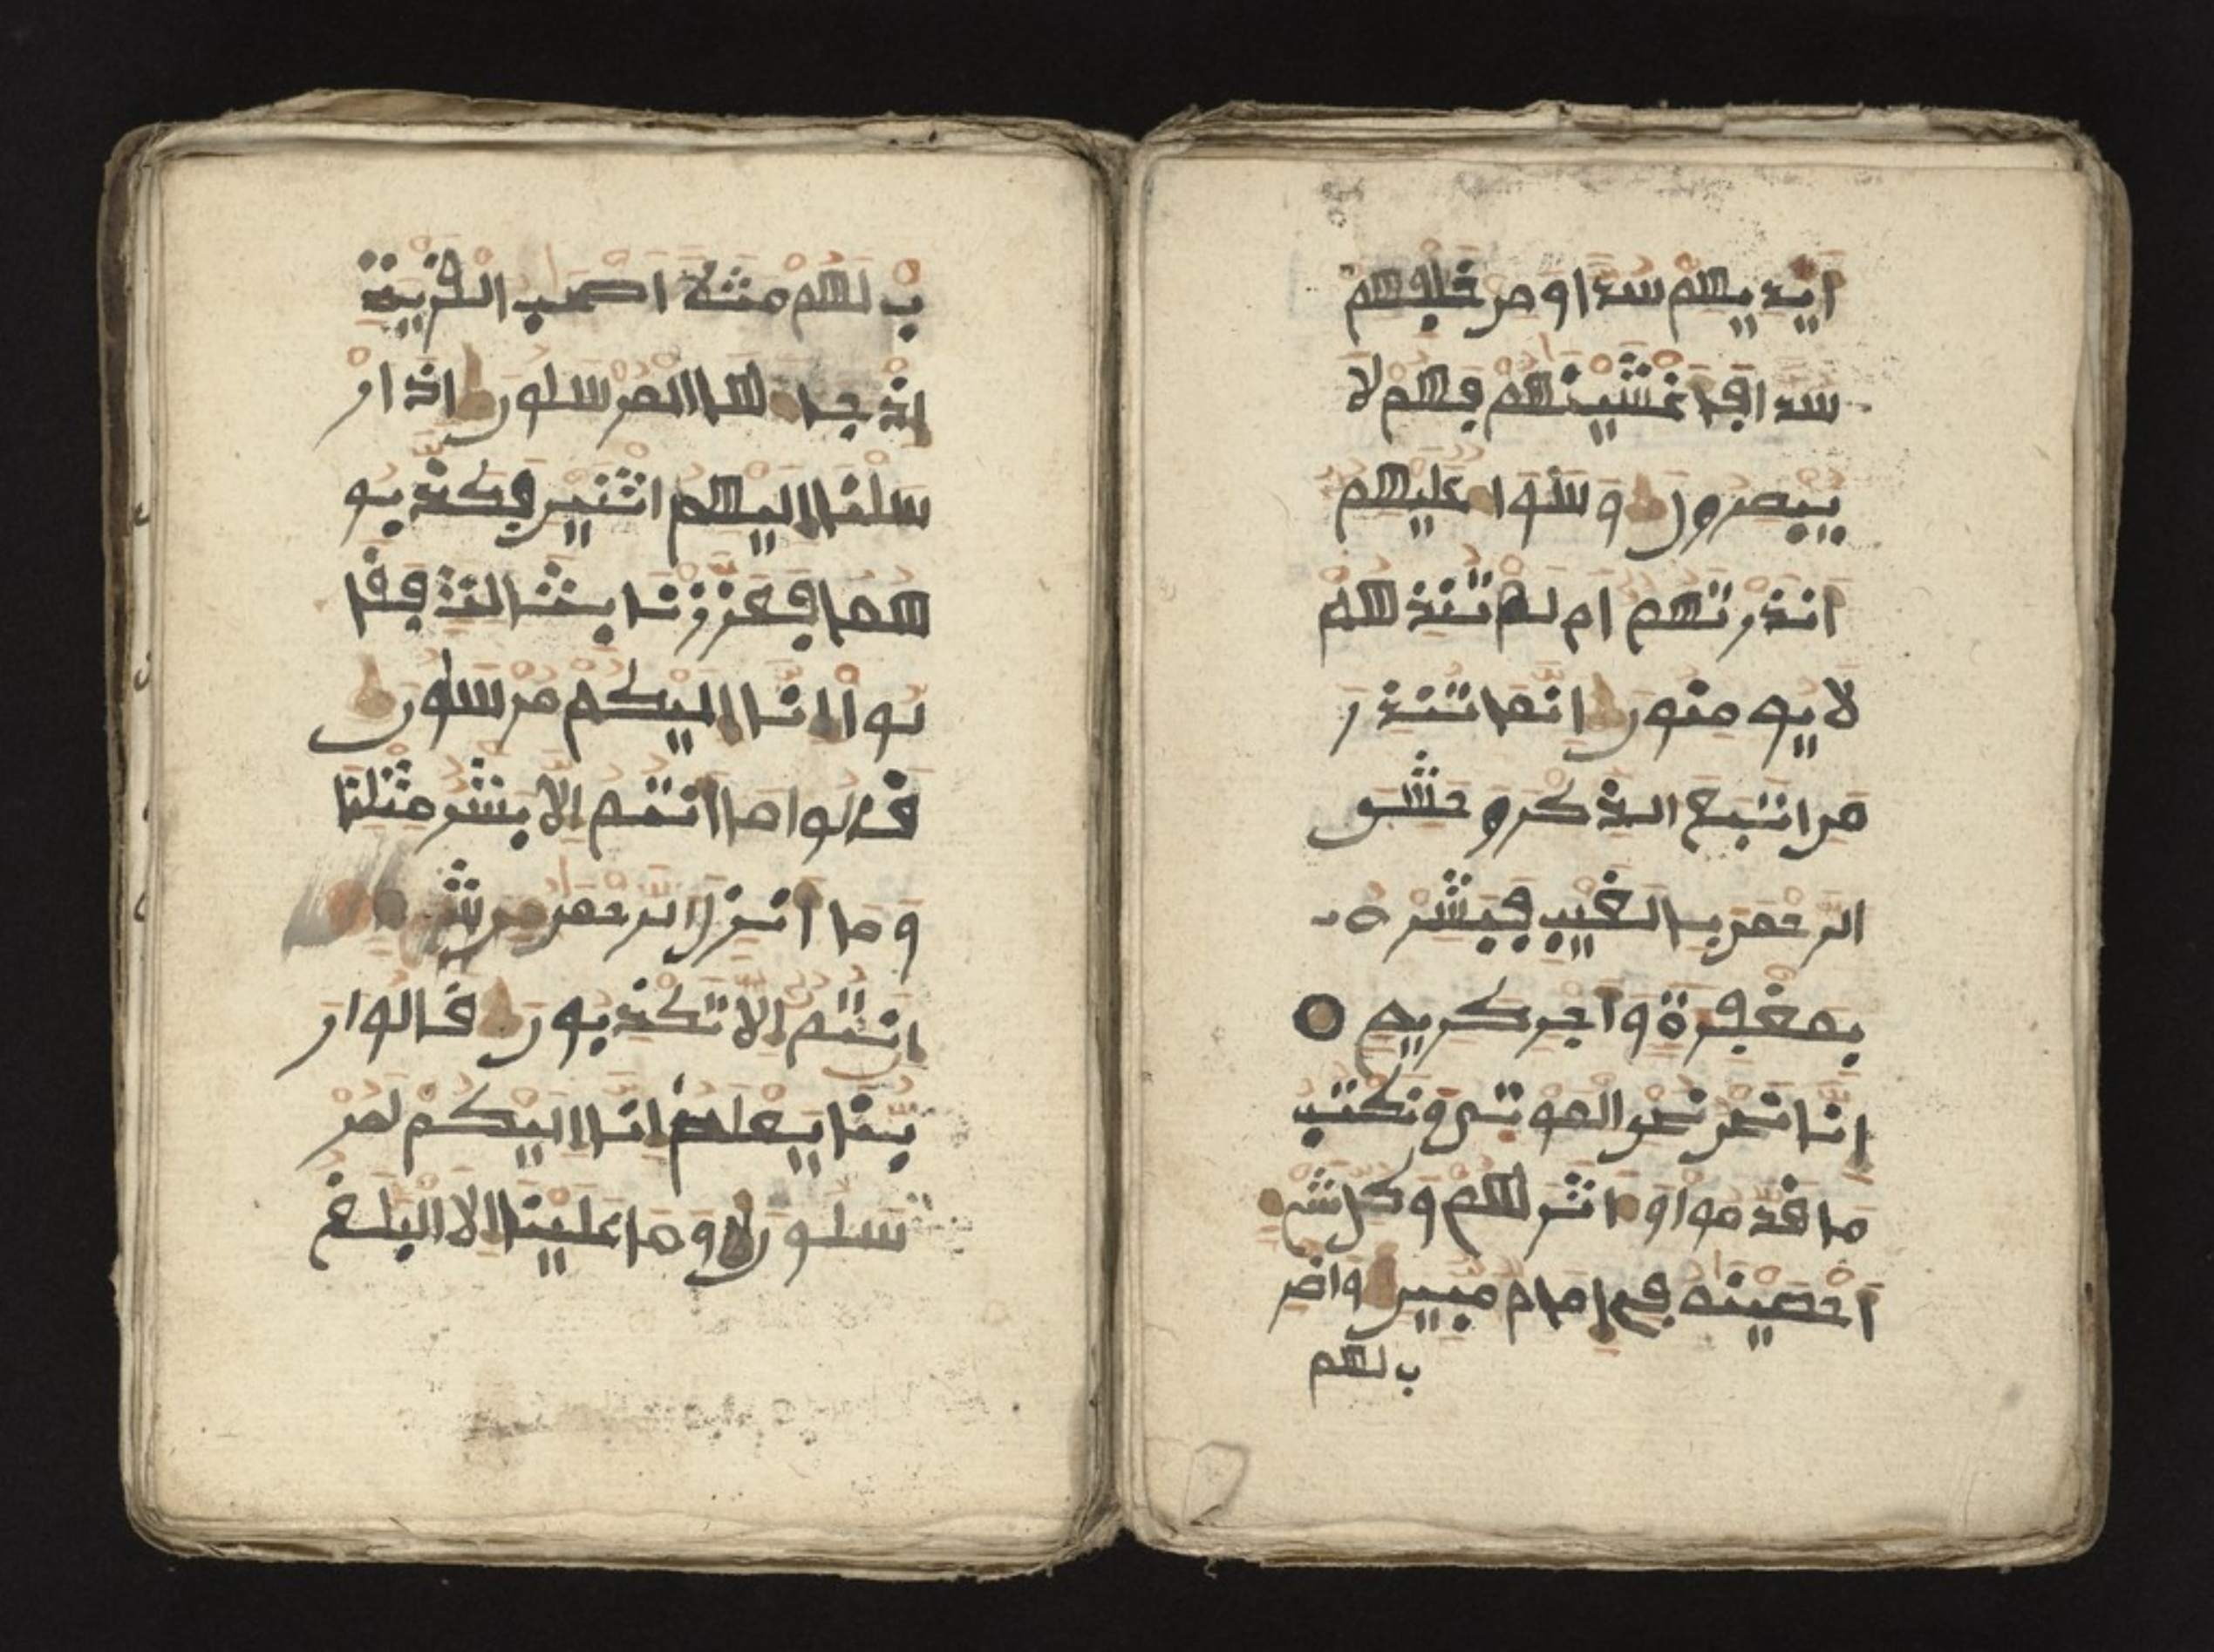 ايديهم سدا ومن خلفهم
سدا فاغشينهم فهم لا
يبصرون وسوا عليهم
انذرتهم ام لم تنذرهم
لا يومنون انما تنذر
من اتبع الذكر وخشى
الرحمن بالغيب فبشره
بمغفرة واجر كريم
انا نحن نحى الموتى ونكتب
ما قدموا واثرهم وكل شى
احصينه فى امام مبين واضر
ب لهم
ب لهم مثلا اصحب القرية
اذ جاها المرسلون اذ ار
سلنا اليهم اثنين فكذبو
هما فعززنا بثالث فقا
لوا انا اليكم مرسلون
قالوا ما انتم الا بشر مثلنا
وما انزل الرحمن من شى
ان انتم الا تكذبون قالوا ر
بنا يعلم انا اليكم لمر
سلون وما علينا الا البلغ